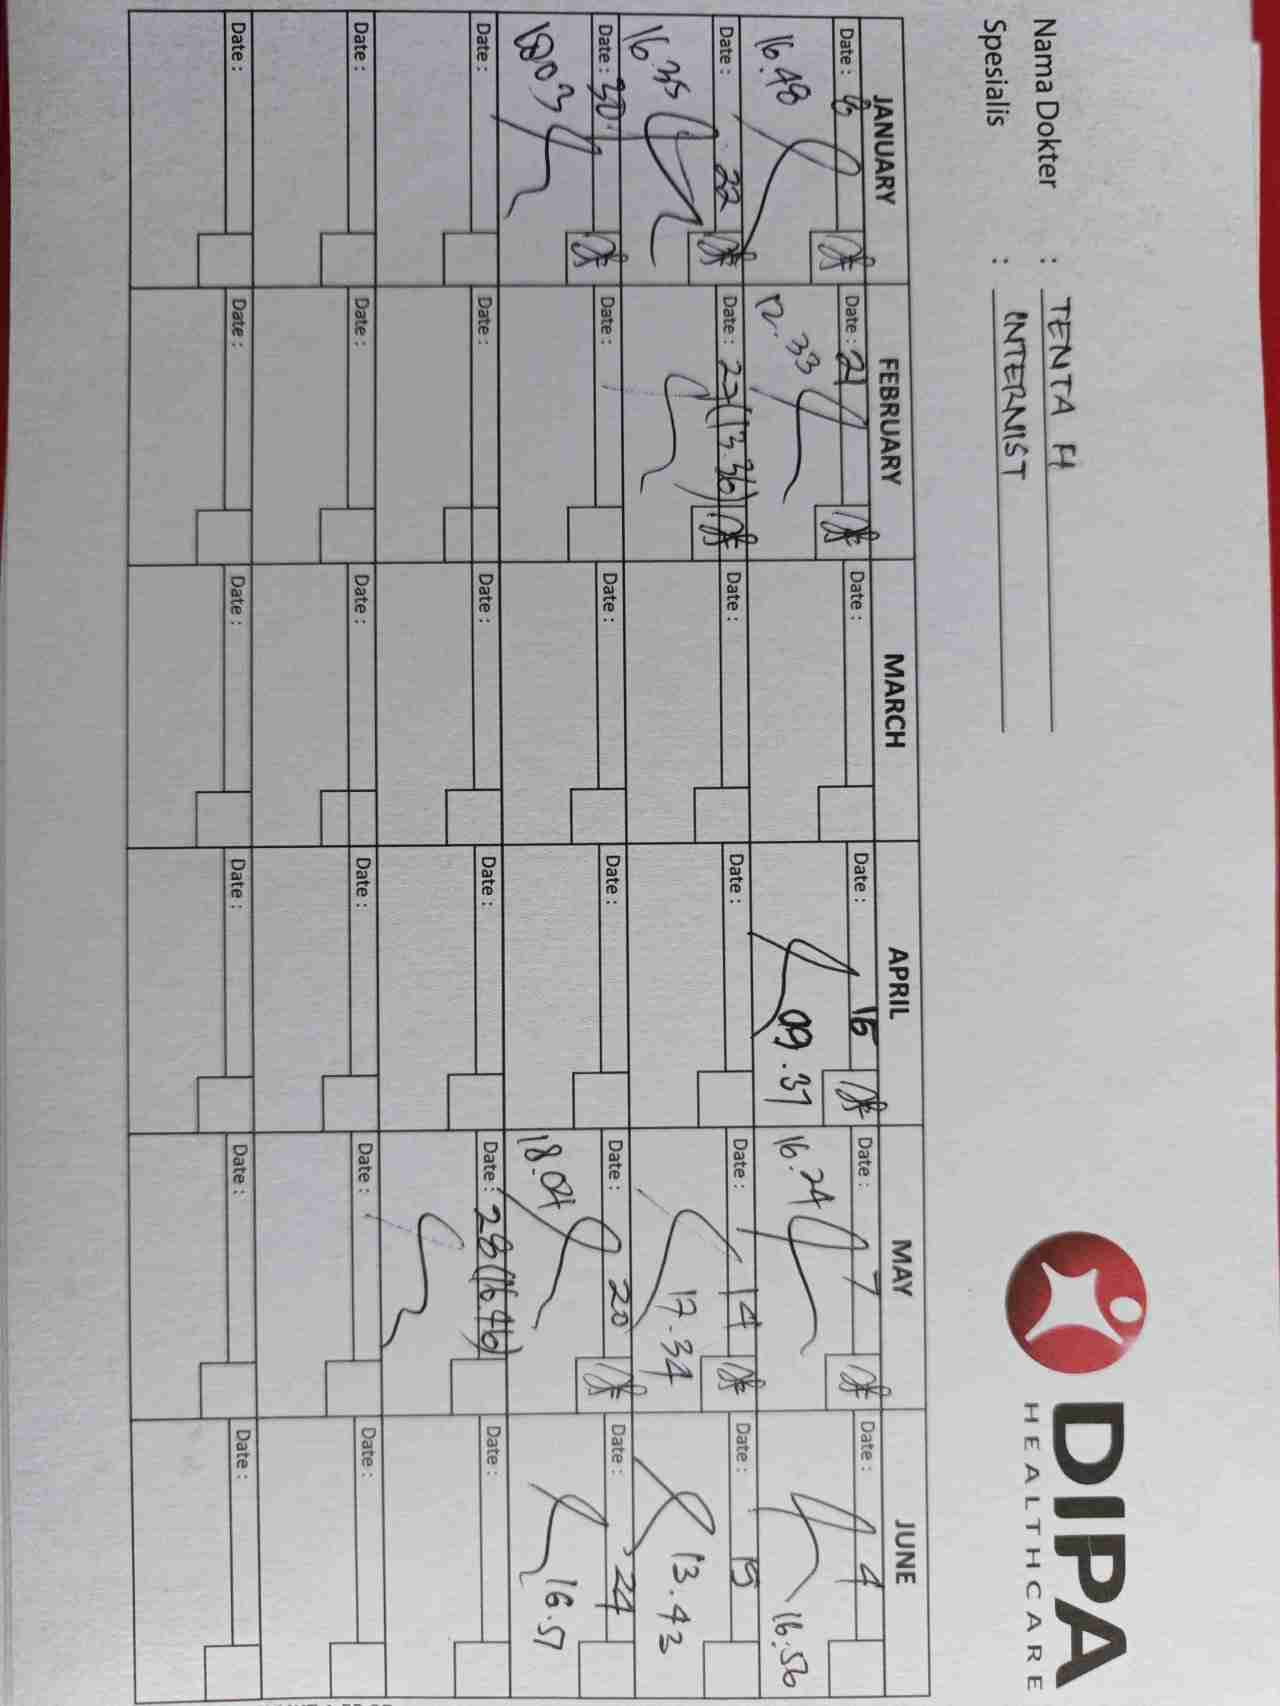 DIPA
HEALTHCARE
Nama Dokter : TENTA H
Spesialis : INTERNIST
JANUARY FEBRUARY MARCH APRIL MAY JUNE
Date : 8 Date : 21 Date : Date : 15 Date : 7 Date : 4
16.48 12.33 09.37 16.24 16.56
Date : 22 Date : 27 (13.36) Date : Date : Date : 14 Date : 19
16.35 17.34 13.43
Date : 30 Date : Date : Date : Date : 20 Date : 24
1803 18.04 16.51
Date : Date : Date : Date : Date : 28 (16.46) Date :
Date : Date : Date : Date : Date : Date :
Date : Date : Date : Date : Date : Date :